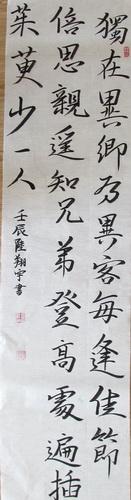 獨在異鄉為異客每逢佳節
倍思親遥知兄弟登高處遍插
茱萸少一人
壬辰陸翔宇書